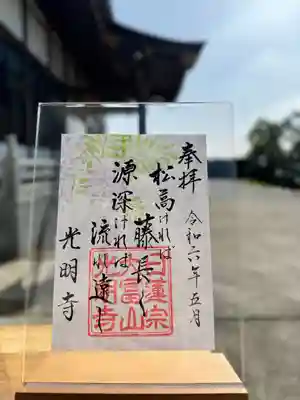 奉拝
令和六年五月
松高ければ
藤長く
源深ければ
流れ遠し
光明寺
日蓮宗
大富山
光明寺